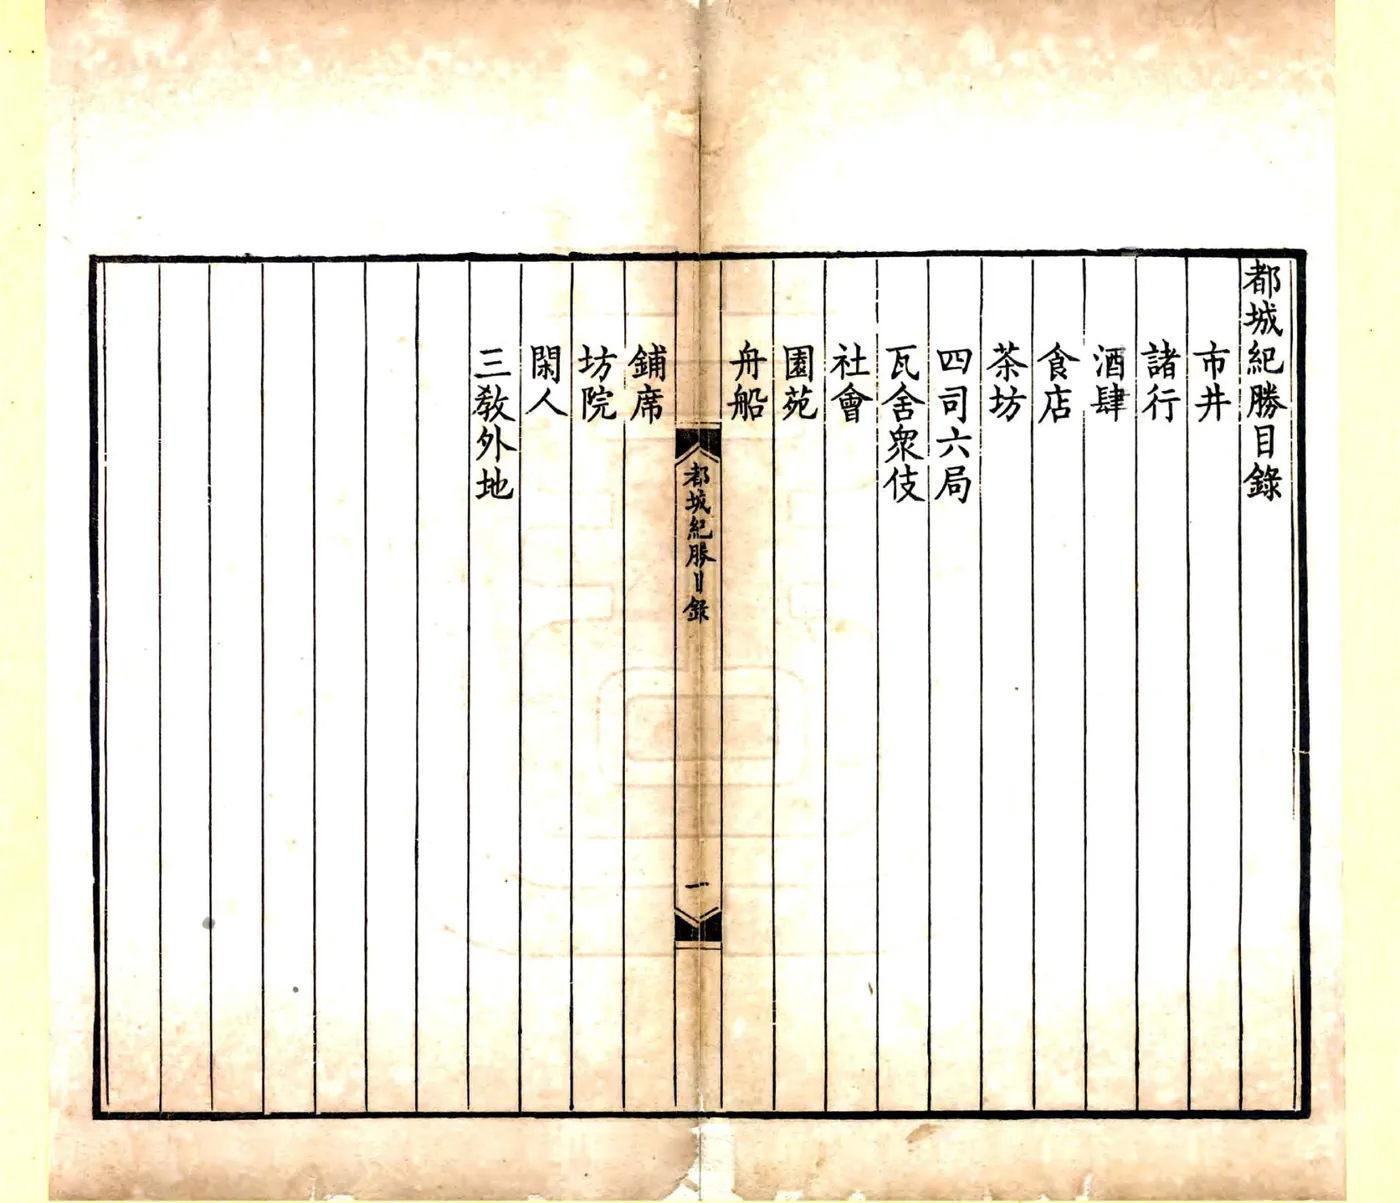 都城紀勝目錄
市井
諸行
酒肆
食店
茶坊
四司六局
瓦舍衆伎
社會
園苑
舟船
都城紀勝目錄
一
鋪席
坊院
閑人
三教外地